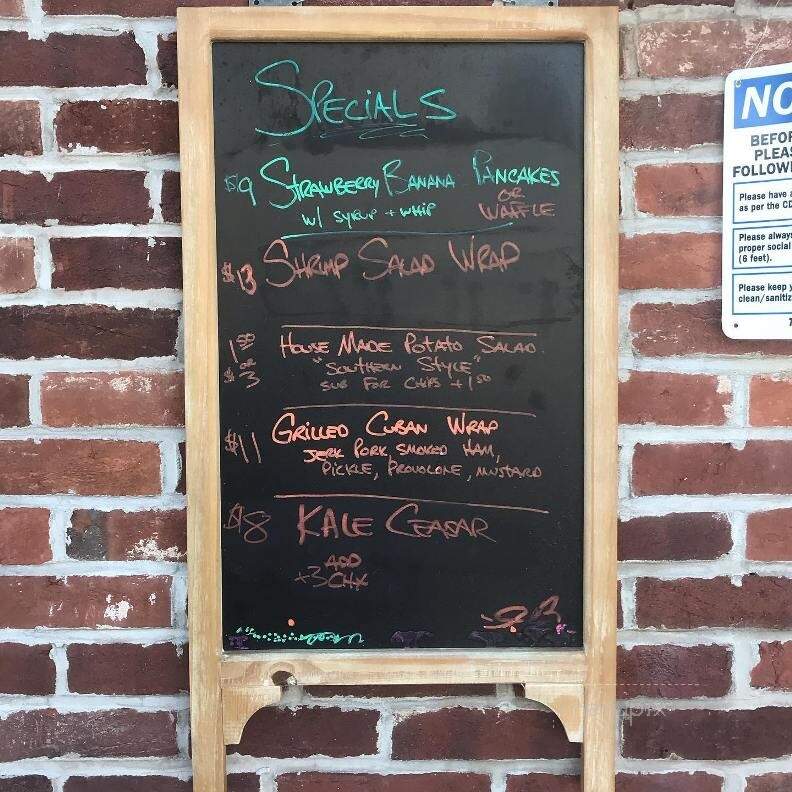 SPECIALS
$9 STRAWBERRY BANANA PANCAKES
OR
w/ SYRUP + WHIP WAFFLE
$13 SHRIMP SALAD WRAP
1 50 HOUSE MADE POTATO SALAD
OR "SOUTHERN STYLE"
$3 SUB FOR CHIPS +1 50
$11 GRILLED CUBAN WRAP
JERK PORK, SMOKED HAM,
PICKLE, PROVOLONE, MUSTARD
$8 KALE CEASAR
ADD
+3 CHX
NO
BEFO
PLEAS
FOLLOW
Please have a
as per the CD
Please always
proper social
(6 feet).
Please keep y
clean/sanitiz